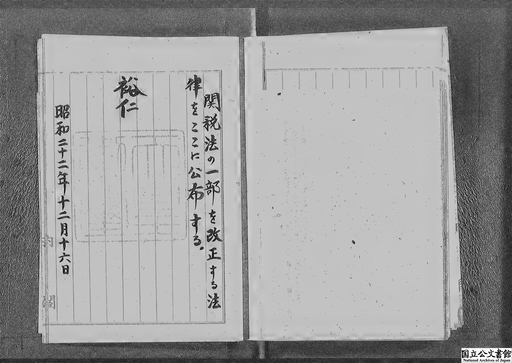 関税法の一部を改正する法
律をここに公布する。
裕仁
昭和二十二年十二月十六日
内閣
国立公文書館
National Archives of Japan